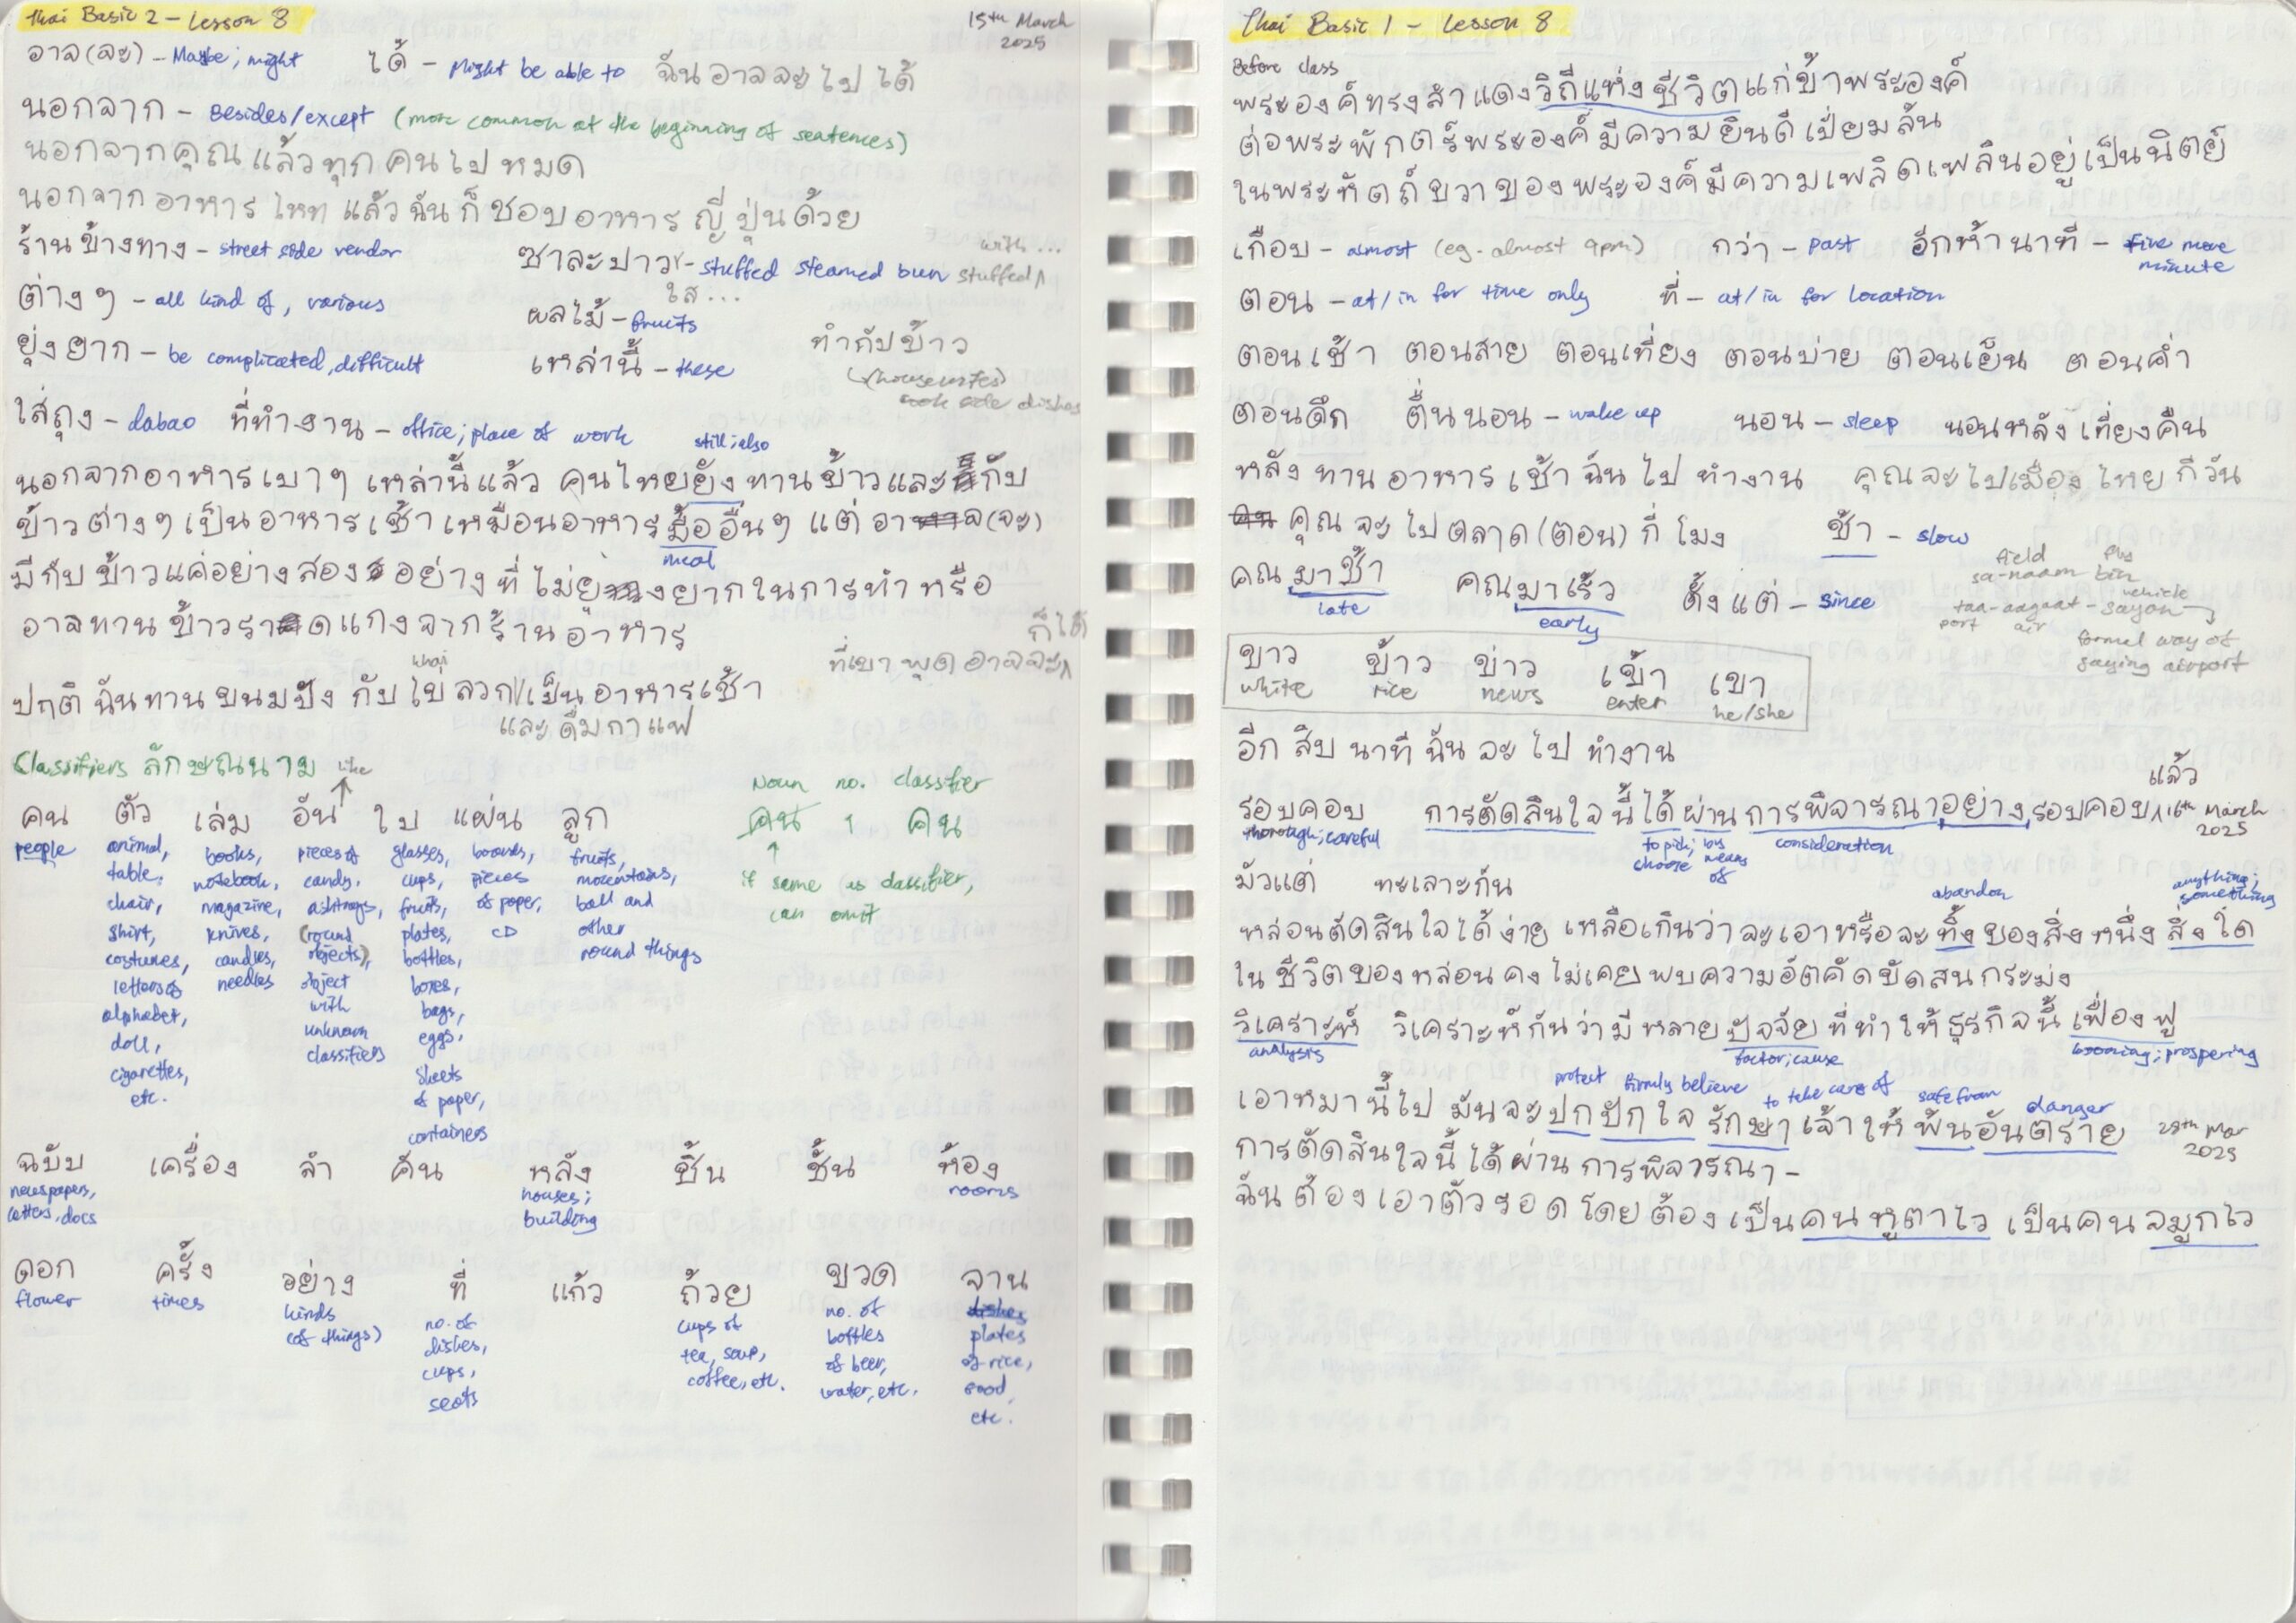 Thai Basic 2 - Lesson 8
15th March 2025
อาจ(จะ) - Maybe; might ได้ - Might be able to ฉันอาจจะไปได้
นอกจาก - Besides/except (more common at the beginning of sentences)
นอกจากคุณแล้วทุกคนไปหมด
นอกจากอาหารไทยแล้วฉันก็ชอบอาหารญี่ปุ่นด้วย
ร้านข้างทาง - street side vendor ซาละปาว - stuffed steamed bun stuffed with ...
ใส่...
ต่างๆ - all kind of, various ผลไม้ - fruits
ยุ่งยาก - be complicated, difficult เหล่านี้ - these
ทำกับข้าว
(housewifes)
cook side dishes
ใส่ถุง - dabao ที่ทำงาน - office; place of work
still; also
นอกจากอาหารเบาๆ เหล่านี้แล้ว คนไทยยังทานข้าวและกับ
ข้าวต่างๆเป็นอาหารเช้าเหมือนอาหารมื้ออื่นๆ แต่ อาจ(จะ)
meal
มีกับข้าวแค่อย่างสองอย่างที่ไม่ยุ่งยากในการทำ หรือ
อาจทานข้าวราดแกงจากร้านอาหาร
ก็ได้
ที่เขาพูดอาจจะ
khai
ปกติฉันทานขนมปัง กับไข่ลวก เป็นอาหารเช้า
และดื่มกาแฟ
Classifiers ลักษณนาม like
Noun no. classifier
คน 1 คน
if same as classifier,
can omit
คน ตัว เล่ม อัน ใบ แผ่น ลูก
people
animal, table, chair, shirt, costumes, letters of alphabet, doll, cigarettes, etc.
books, notebook, magazine, knives, candles, needles
pieces of candy, ashtrays, (round objects), object with unknown classifiers
glasses, cups, fruits, plates, bottles, boxes, bags, eggs, sheets of paper, containers
boards, pieces of paper, CD
fruits, mountains, ball and other round things
ฉบับ เครื่อง ลำ คัน หลัง ชิ้น ชั้น ห้อง
newspapers, letters, docs
houses; building
rooms
ดอก ครั้ง อย่าง ที่ แก้ว ถ้วย ขวด จาน
flower
times
kinds (of things)
no. of dishes, cups, seats
cups of tea, soup, coffee, etc.
no. of bottles of beer, water, etc.
dishes plates of rice, food, etc.
Thai Basic 1 - Lesson 8
Before class
พระองค์ทรงสำแดงวิถีแห่งชีวิตแก่ข้าพระองค์
ต่อพระพักตร์พระองค์มีความยินดีเปี่ยมล้น
ในพระหัตถ์ขวาของพระองค์มีความเพลิดเพลินอยู่เป็นนิตย์
เกือบ - almost (eg. almost 9pm) กว่า - past อีกห้านาที - five more minute
ตอน - at/in for time only ที่ - at/in for location
ตอนเช้า ตอนสาย ตอนเที่ยง ตอนบ่าย ตอนเย็น ตอนค่ำ
ตอนดึก ตื่นนอน - wake up นอน - sleep นอนหลังเที่ยงคืน
หลังทานอาหารเช้าฉันไปทำงาน คุณจะไปเมืองไทยกี่วัน
คุณจะไปตลาด(ตอน)กี่โมง ช้า - slow
คณมาช้า คณมาเร็ว ตั้งแต่ - since
late
early
field
sa-naam bin
taa-aagaat-sayan
port air vehicle
formal way of
saying airport
ขาว ข้าว ข่าว เข้า เขา
white rice news enter he/she
อีกสิบนาทีฉันจะไปทำงาน
แล้ว
รอบคอบ การตัดสินใจนี้ได้ผ่านการพิจารณาอย่างรอบคอบ 16th March 2025
thorough; careful
to pick; choose
by means of
consideration
มัวแต่ ทะเลาะกัน
abandon
anything; something
หล่อนตัดสินใจได้ง่าย เหลือเกินว่าจะเอาหรือจะทิ้งของสิ่งหนึ่งสิ่งใด
ในชีวิตของหล่อนคงไม่เคยพบความอัตคัดขัดสนกระมัง
วิเคราะห์ วิเคราะห์กันว่ามีหลายปัจจัยที่ทำให้ธุรกิจนี้เฟื่องฟู
analysis
factor; cause
booming; prospering
protect firmly believe to take care of safe from danger
เอาหมานี้ไป มันจะปกปักใจรักษาเจ้าให้พ้นอันตราย 28th Mar 2025
การตัดสินใจนี้ได้ผ่านการพิจารณา -
ฉันต้องเอาตัวรอดโดยต้องเป็นคนหูตาไว เป็นคนจมูกไว